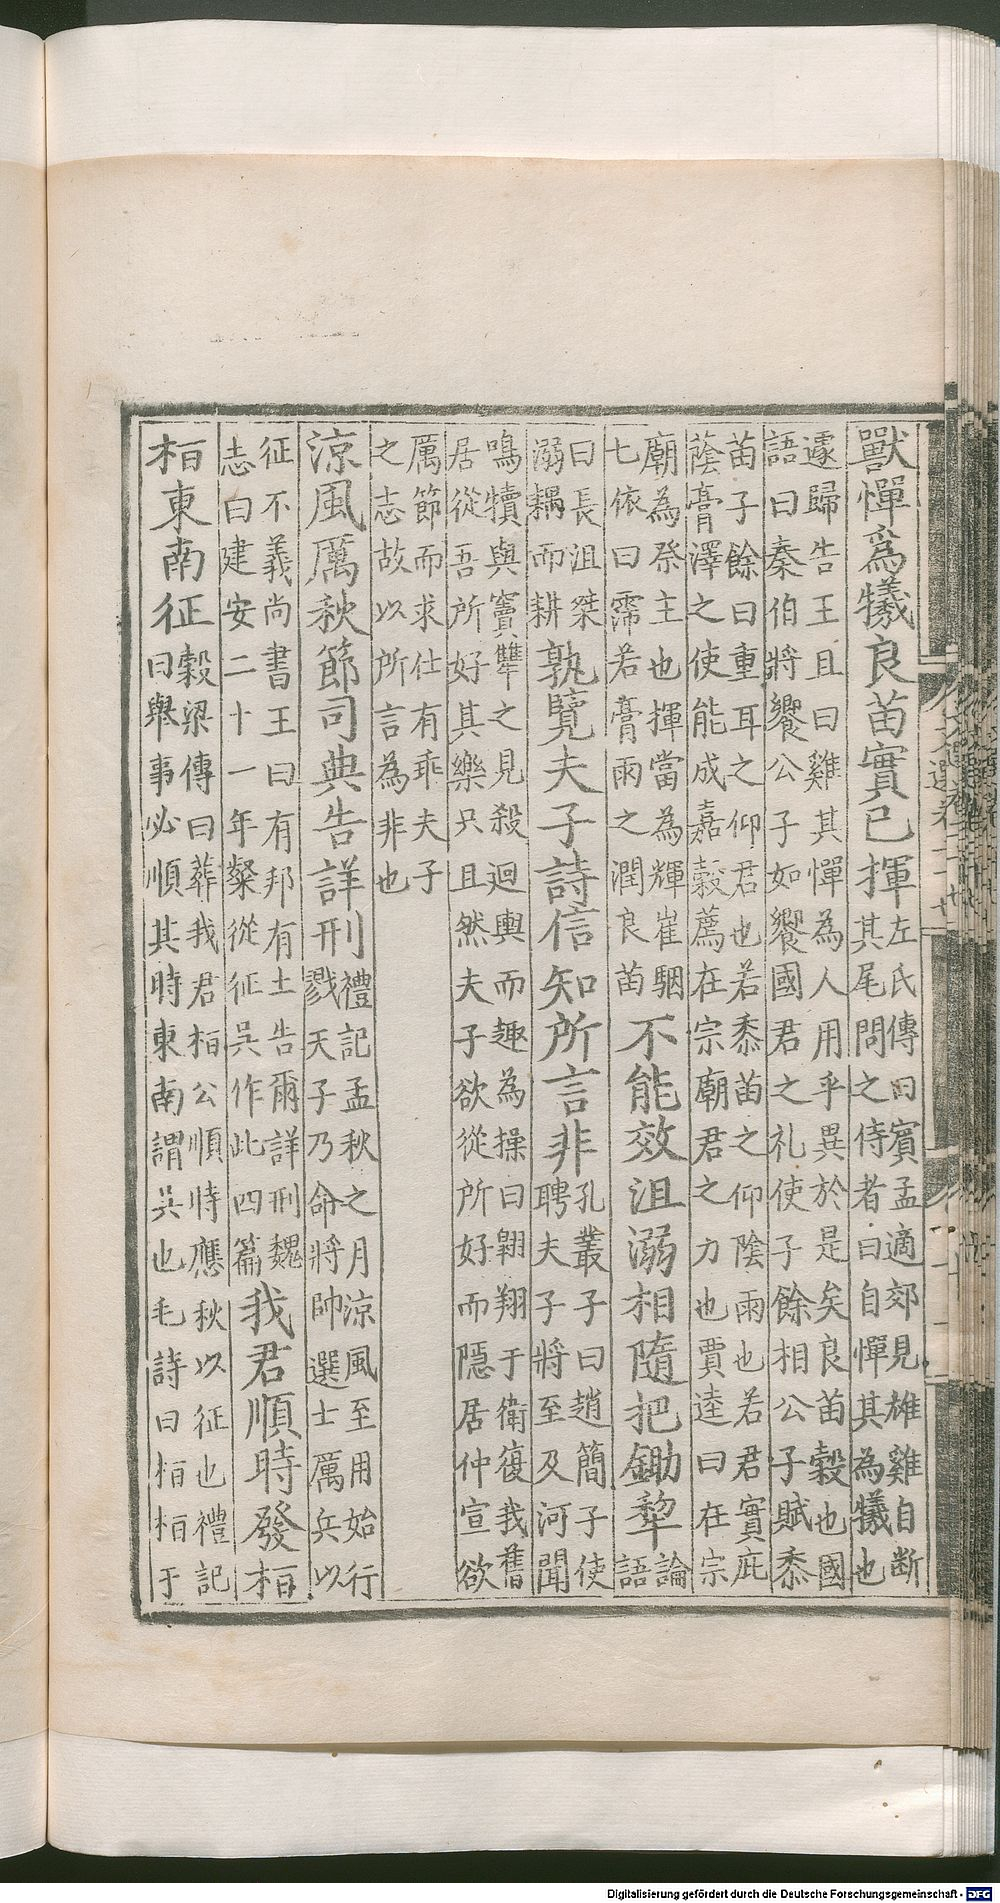 獸憚為犧良苗實已揮左氏傳曰賓孟適郊見雄雞自断其尾問之侍者曰自憚其為犧也
遽歸告王且曰雞其憚為人用乎異於是矣良苗穀也國語曰秦伯將饗公子如饗國君之礼使子餘相公子賦黍
苗子餘曰重耳之仰君也若黍苗之仰陰雨也若君實庇蔭膏澤之使能成嘉穀薦在宗廟君之力也賈逵曰在宗
廟為祭主也揮當為輝崔駰七依曰霈若膏雨之潤良苗不能效沮溺相隨把鋤犂論語
曰長沮桀溺耦而耕孰覽夫子詩信知所言非孔叢子曰趙簡子使聘夫子將至及河聞
鳴犢與竇犨之見殺迴輿而趣為操曰翺翔于衛復我舊居從吾所好其樂只且然夫子欲從所好而隱居仲宣欲
厲節而求仕有乖夫子之志故以所言為非也
涼風厲秋節司典告詳刑禮記孟秋之月涼風至用始行戮天子乃命將帥選士厲兵以
征不義尚書王曰有邦有土告爾詳刑魏志曰建安二十一年粲從征吳作此四篇我君順時發栢
栢東南征穀梁傳曰葬我君栢公順時應秋以征也禮記曰舉事必順其時東南謂吳也毛詩曰栢栢于
文選卷二十七
Digitalisierung gefördert durch die Deutsche Forschungsgemeinschaft - DFG